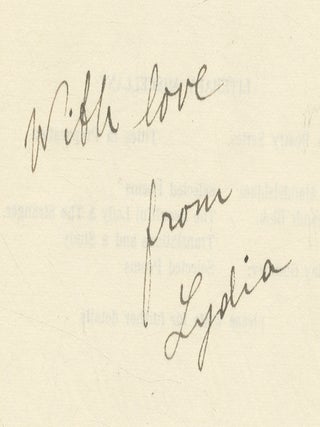 With love
from
Lydia